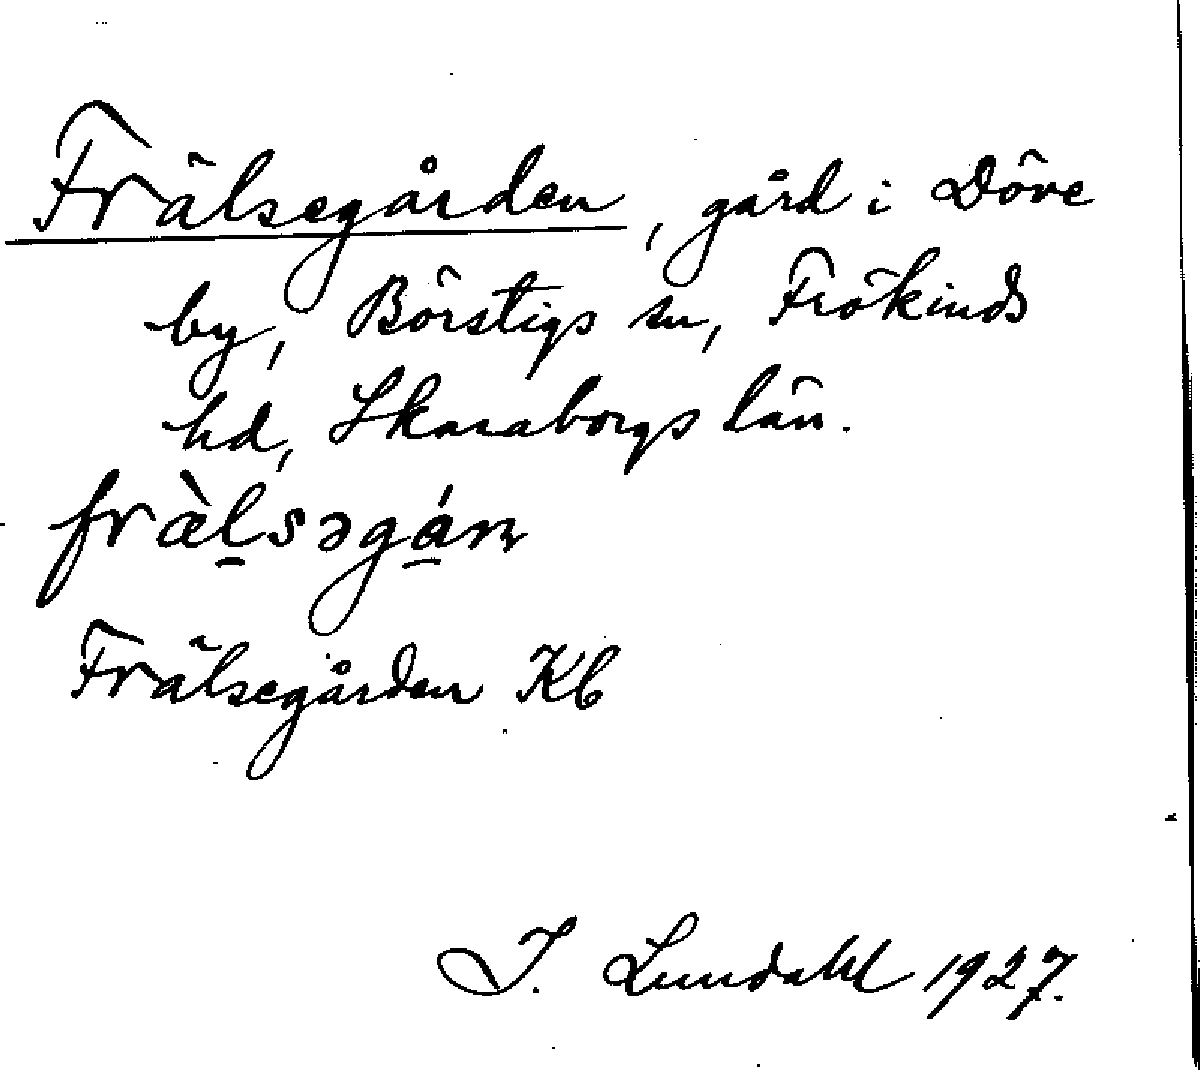 Frälsegården, gård i Döve
by, Börstigs sn, Frökinds
hd, Skaraborgs län.
fræ̀l̠səgá̠ɳ
Frälsegården Kb
I. Lundahl 1927.